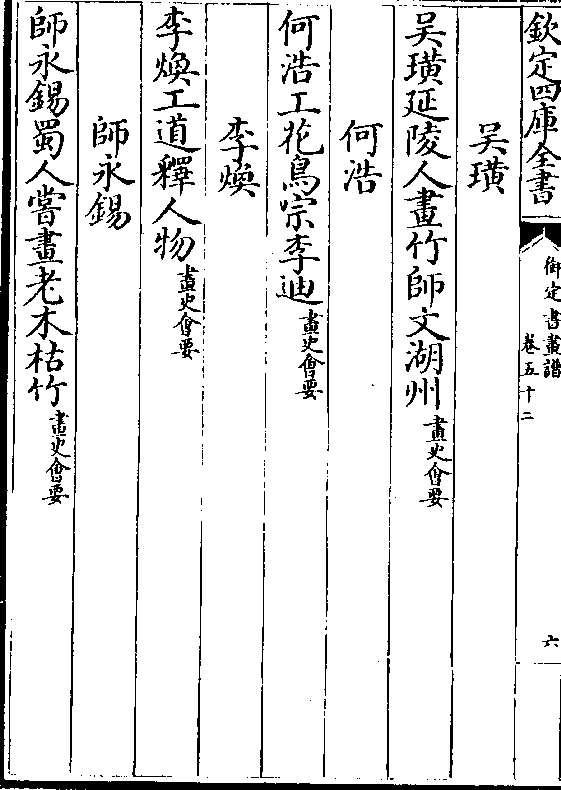 欽定四庫全書
御定書畫譜
卷五十二
六
吴璜
吴璜延陵人畫竹師文湖州畫史會要
何浩
何浩工花鳥宗李迪畫史會要
李煥
李煥工道釋人物畫史會要
師永錫
師永錫蜀人嘗畫老木枯竹畫史會要